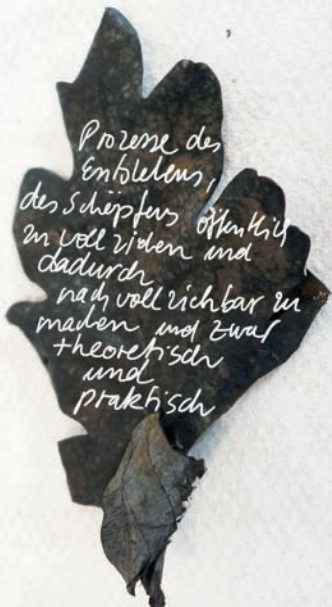 Prozesse des
Entstehens,
des Schöpfens öffentlich
zu vollziehen und
dadurch
nachvollziehbar zu
machen und zwar
theoretisch
und
praktisch